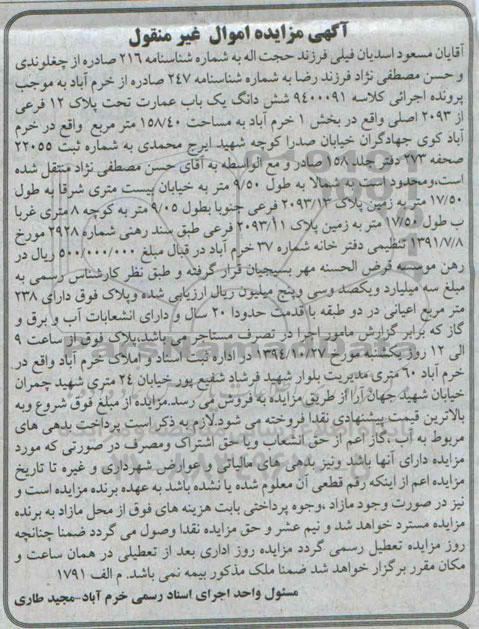 آگهی مزایده اموال غیر منقول
آقایان مسعود اسدیان فیلی فرزند حجت اله به شماره شناسنامه ۲۱۶ صادره از چغلوندی
و حسن مصطفی نژاد فرزند رضا به شماره شناسنامه ۲۴۷ صادره از خرم آباد به موجب
پرونده اجرائی کلاسه ۹۴۰۰۰۹۱ شش دانگ یک باب عمارت تحت پلاک ۱۲ فرعی
از ۲۰۹۳ اصلی واقع در بخش ۱ خرم آباد به مساحت ۱۵۸/۴۰ متر مربع واقع در خرم
آباد کوی جهادگران خیابان صدرا کوچه شهید ایرج محمدی به شماره ثبت ۲۲۰۵۵
صفحه ۳۷۳ دفتر جلد ۱۵۸ صادر و مع الواسطه به آقای حسن مصطفی نژاد منتقل شده
است،ومحدود است به شمالا به طول ۹/۵۰ متر به خیابان بیست متری شرقا به طول
۱۷/۵۰ متر به زمین پلاک ۲۰۹۳/۱۳ فرعی جنوبا بطول ۹/۰۵ متر به کوچه ۸ متری غربا
ب طول ۱۷/۵۰ متر به زمین پلاک ۲۰۹۳/۱۱ فرعی طبق سند رهنی شماره ۲۹۲۸ مورخ
۱۳۹۱/۷/۸ تنظیمی دفتر خانه شماره ۳۷ خرم آباد در قبال مبلغ ۵۰۰/۰۰۰/۰۰۰ ریال در
رهن موسسه قرض الحسنه مهر بسیجیان قرار گرفته و طبق نظر کارشناس رسمی به
مبلغ سه میلیارد ویکصد وسی وپنج میلیون ریال ارزیابی شده وپلاک فوق دارای ۲۳۸
متر مربع اعیانی در دو طبقه با قدمت حدودا ۲۰ سال و دارای انشعابات آب و برق و
گاز که برابر گزارش مامور اجرا در تصرف مستاجر می باشد،پلاک فوق از ساعت ۹
الی ۱۲ روز یکشنبه مورخ ۱۳۹۴/۱۰/۲۷ در اداره ثبت اسناد و املاک خرم آباد واقع در
خرم آباد ۶۰ متری مدیریت بلوار شهید فرشاد شفیع پور خیابان ۲۴ متری شهید چمران
خیابان شهید جهان آرا از طریق مزایده به فروش می رسد.مزایده از مبلغ فوق شروع وبه
بالاترین قیمت پیشنهادی نقدا فروخته می شود.لازم به ذکر است پرداخت بدهی های
مربوط به آب ،گاز اعم از حق انشعاب ویا حق اشتراک ومصرف در صورتی که مورد
مزایده دارای آنها باشد ونیز بدهی های مالیاتی و عوارض شهرداری و غیره تا تاریخ
مزایده اعم از اینکه رقم قطعی آن معلوم شده یا نشده باشد به عهده برنده مزایده است و
نیز در صورت وجود مازاد ،وجوه پرداختی بابت هزینه های فوق از محل مازاد به برنده
مزایده مسترد خواهد شد و نیم عشر و حق مزایده نقدا وصول می گردد ضمنا چنانچه
روز مزایده تعطیل رسمی گردد مزایده روز اداری بعد از تعطیلی در همان ساعت و
مکان مقرر برگزار خواهد شد ضمنا ملک مذکور بیمه نمی باشد. م الف ۱۷۹۱
مسئول واحد اجرای اسناد رسمی خرم آباد-مجید طاری